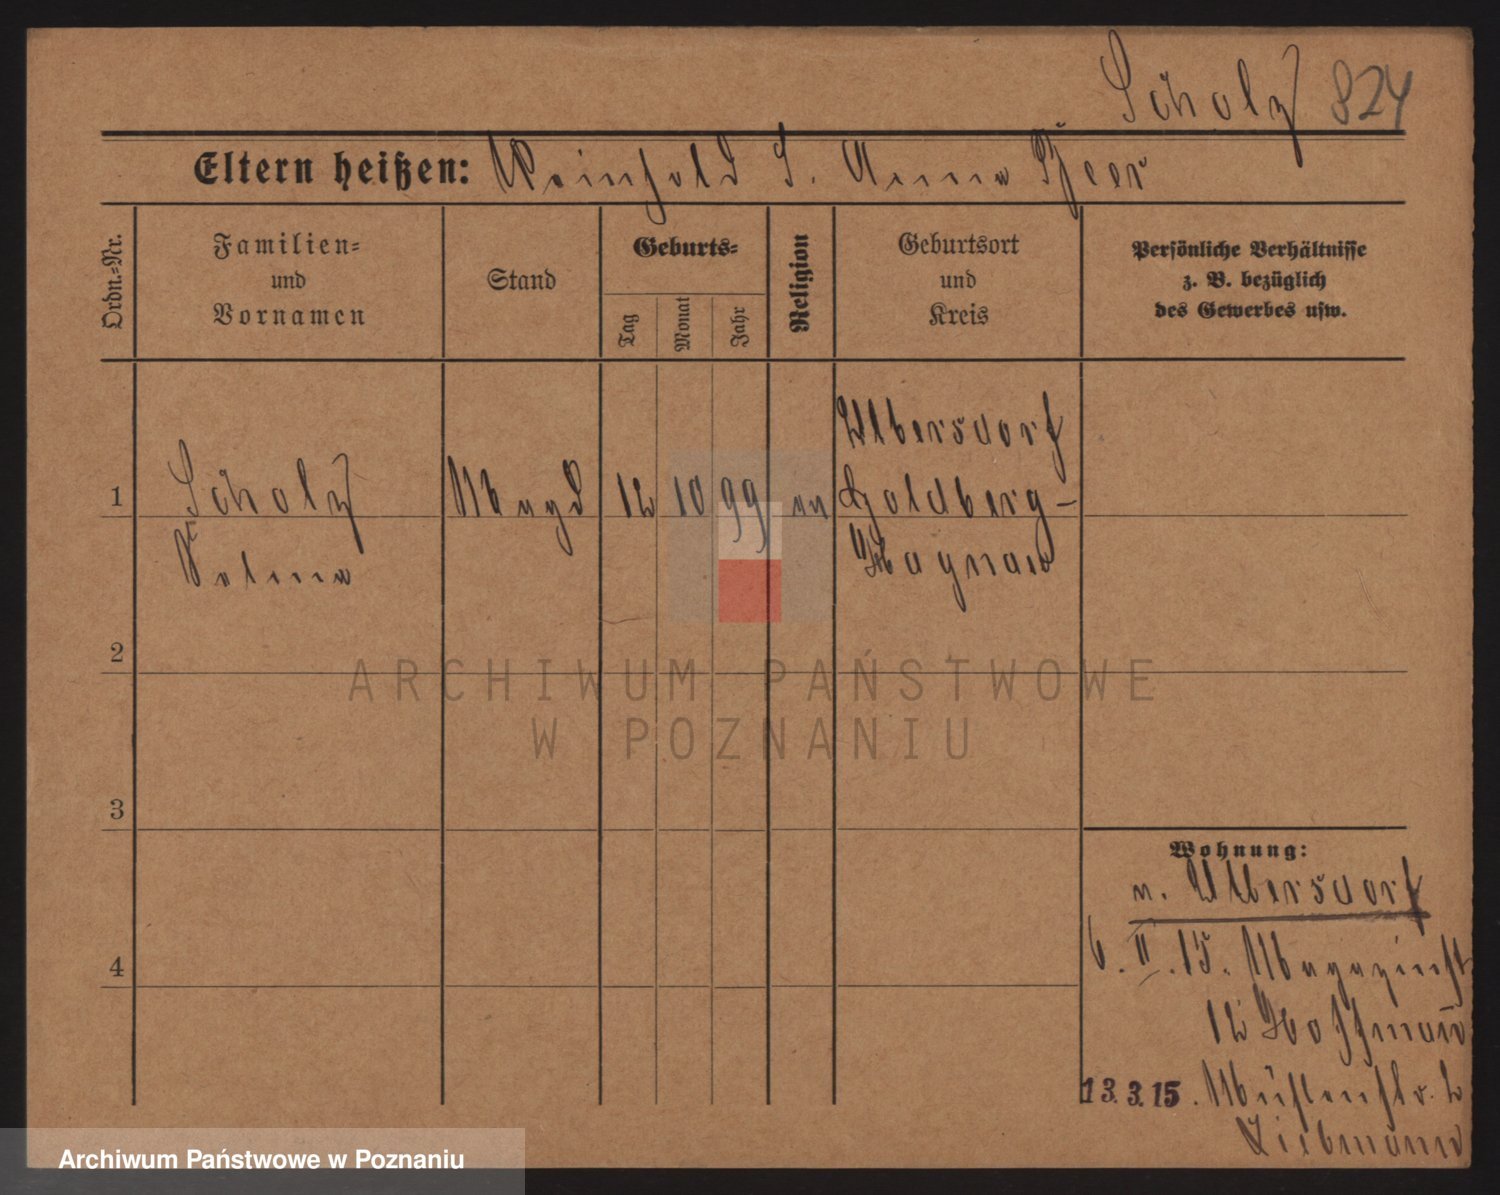 Scholz 824
Eltern heißen: Reinhold S. Anna Heer
Ordn.-Nr.
Familien-
und
Vornamen
Stand
Geburts-
Tag
Monat
Jahr
Religion
Geburtsort
und
Kreis
Persönliche Verhältnisse
z. B. bezüglich
des Gewerbes usw.
Ulbersdorf
1 Scholz Magd 12 10 99 ev Goldberg-
Selma Haynau
2
ARCHIWUM PAŃSTWOWE
W POZNANIU
3
Wohnung:
n. Ulbersdorf
4
6. II. 15. Magazinst
12 Hoffmann
13.3.15. Mühlenstr. 2
Liebmann
Archiwum Państwowe w Poznaniu